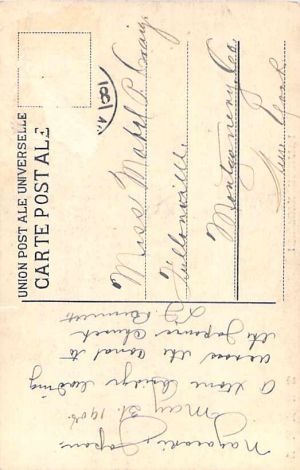 UNION POSTALE UNIVERSELLE
CARTE POSTALE
181
Miss Mabel P. Craig,
Fultonville
Montgomery Co.
New York
Nagasaki, Japan
May 31, 1908.
A stone bridge leading
across the canal to
the Japanese Church